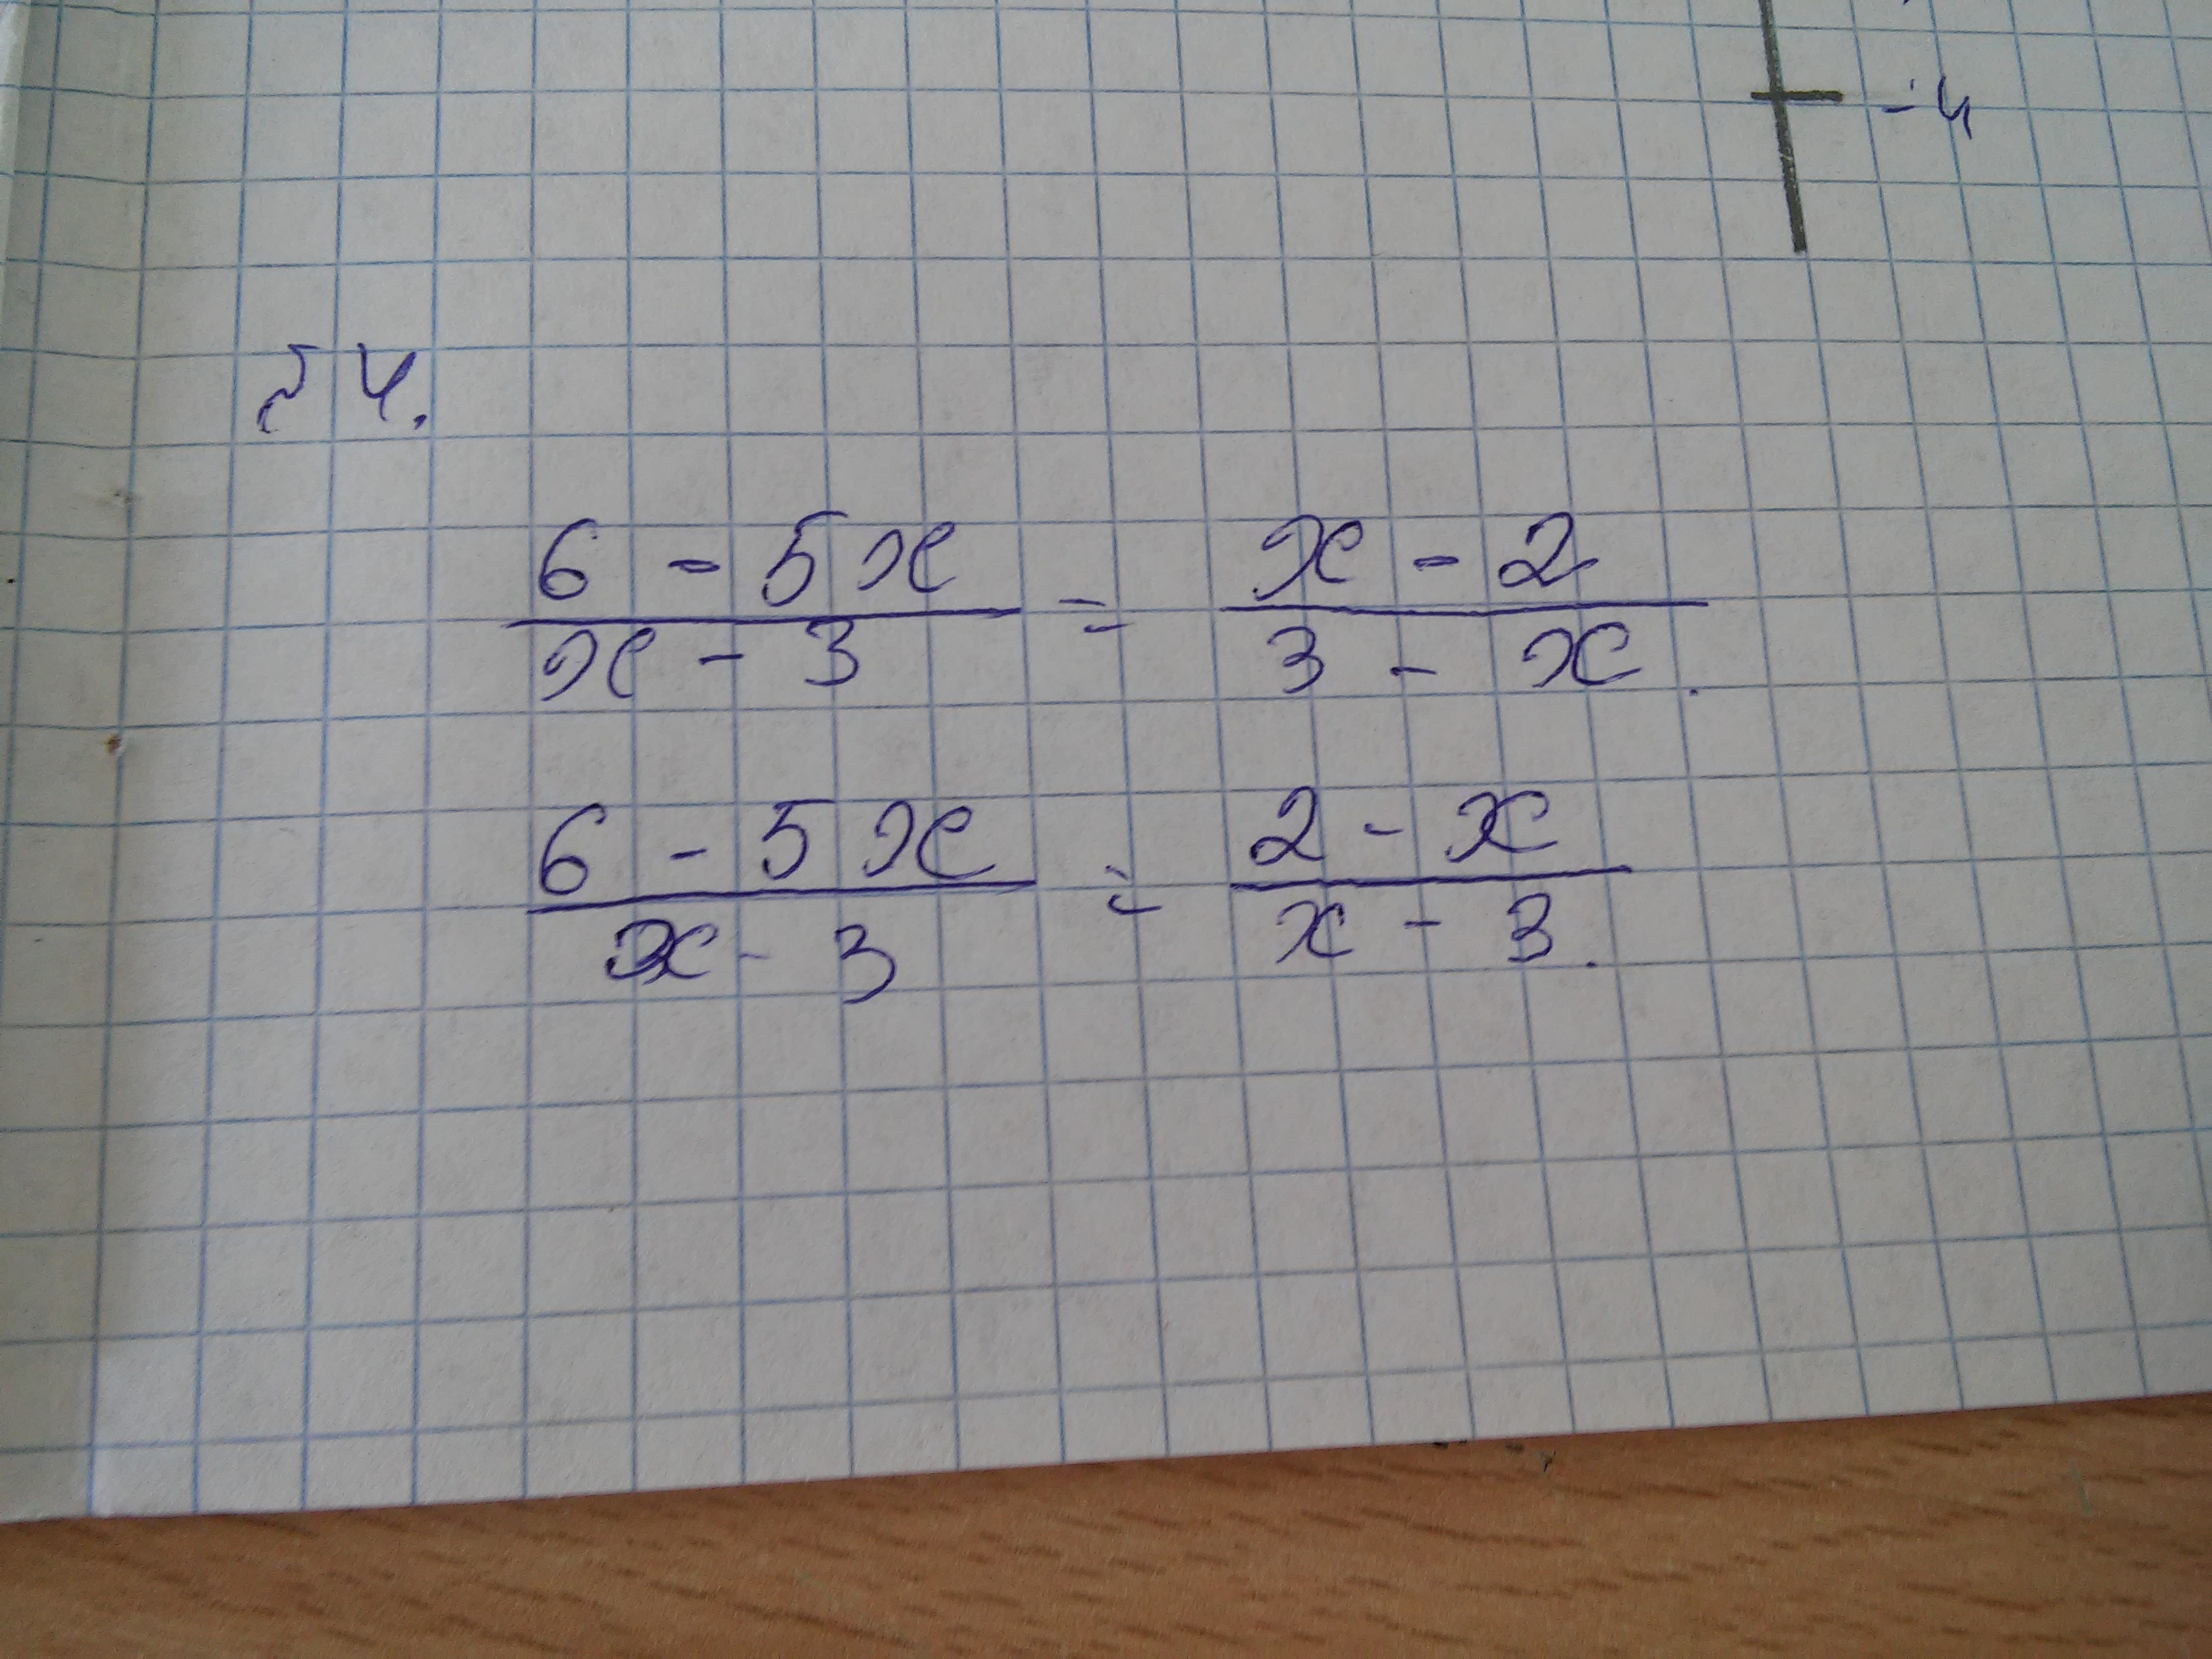 -4
№4.
6 - 5x / x - 3 = x - 2 / 3 - x.
6 - 5x / x - 3 = 2 - x / x - 3.